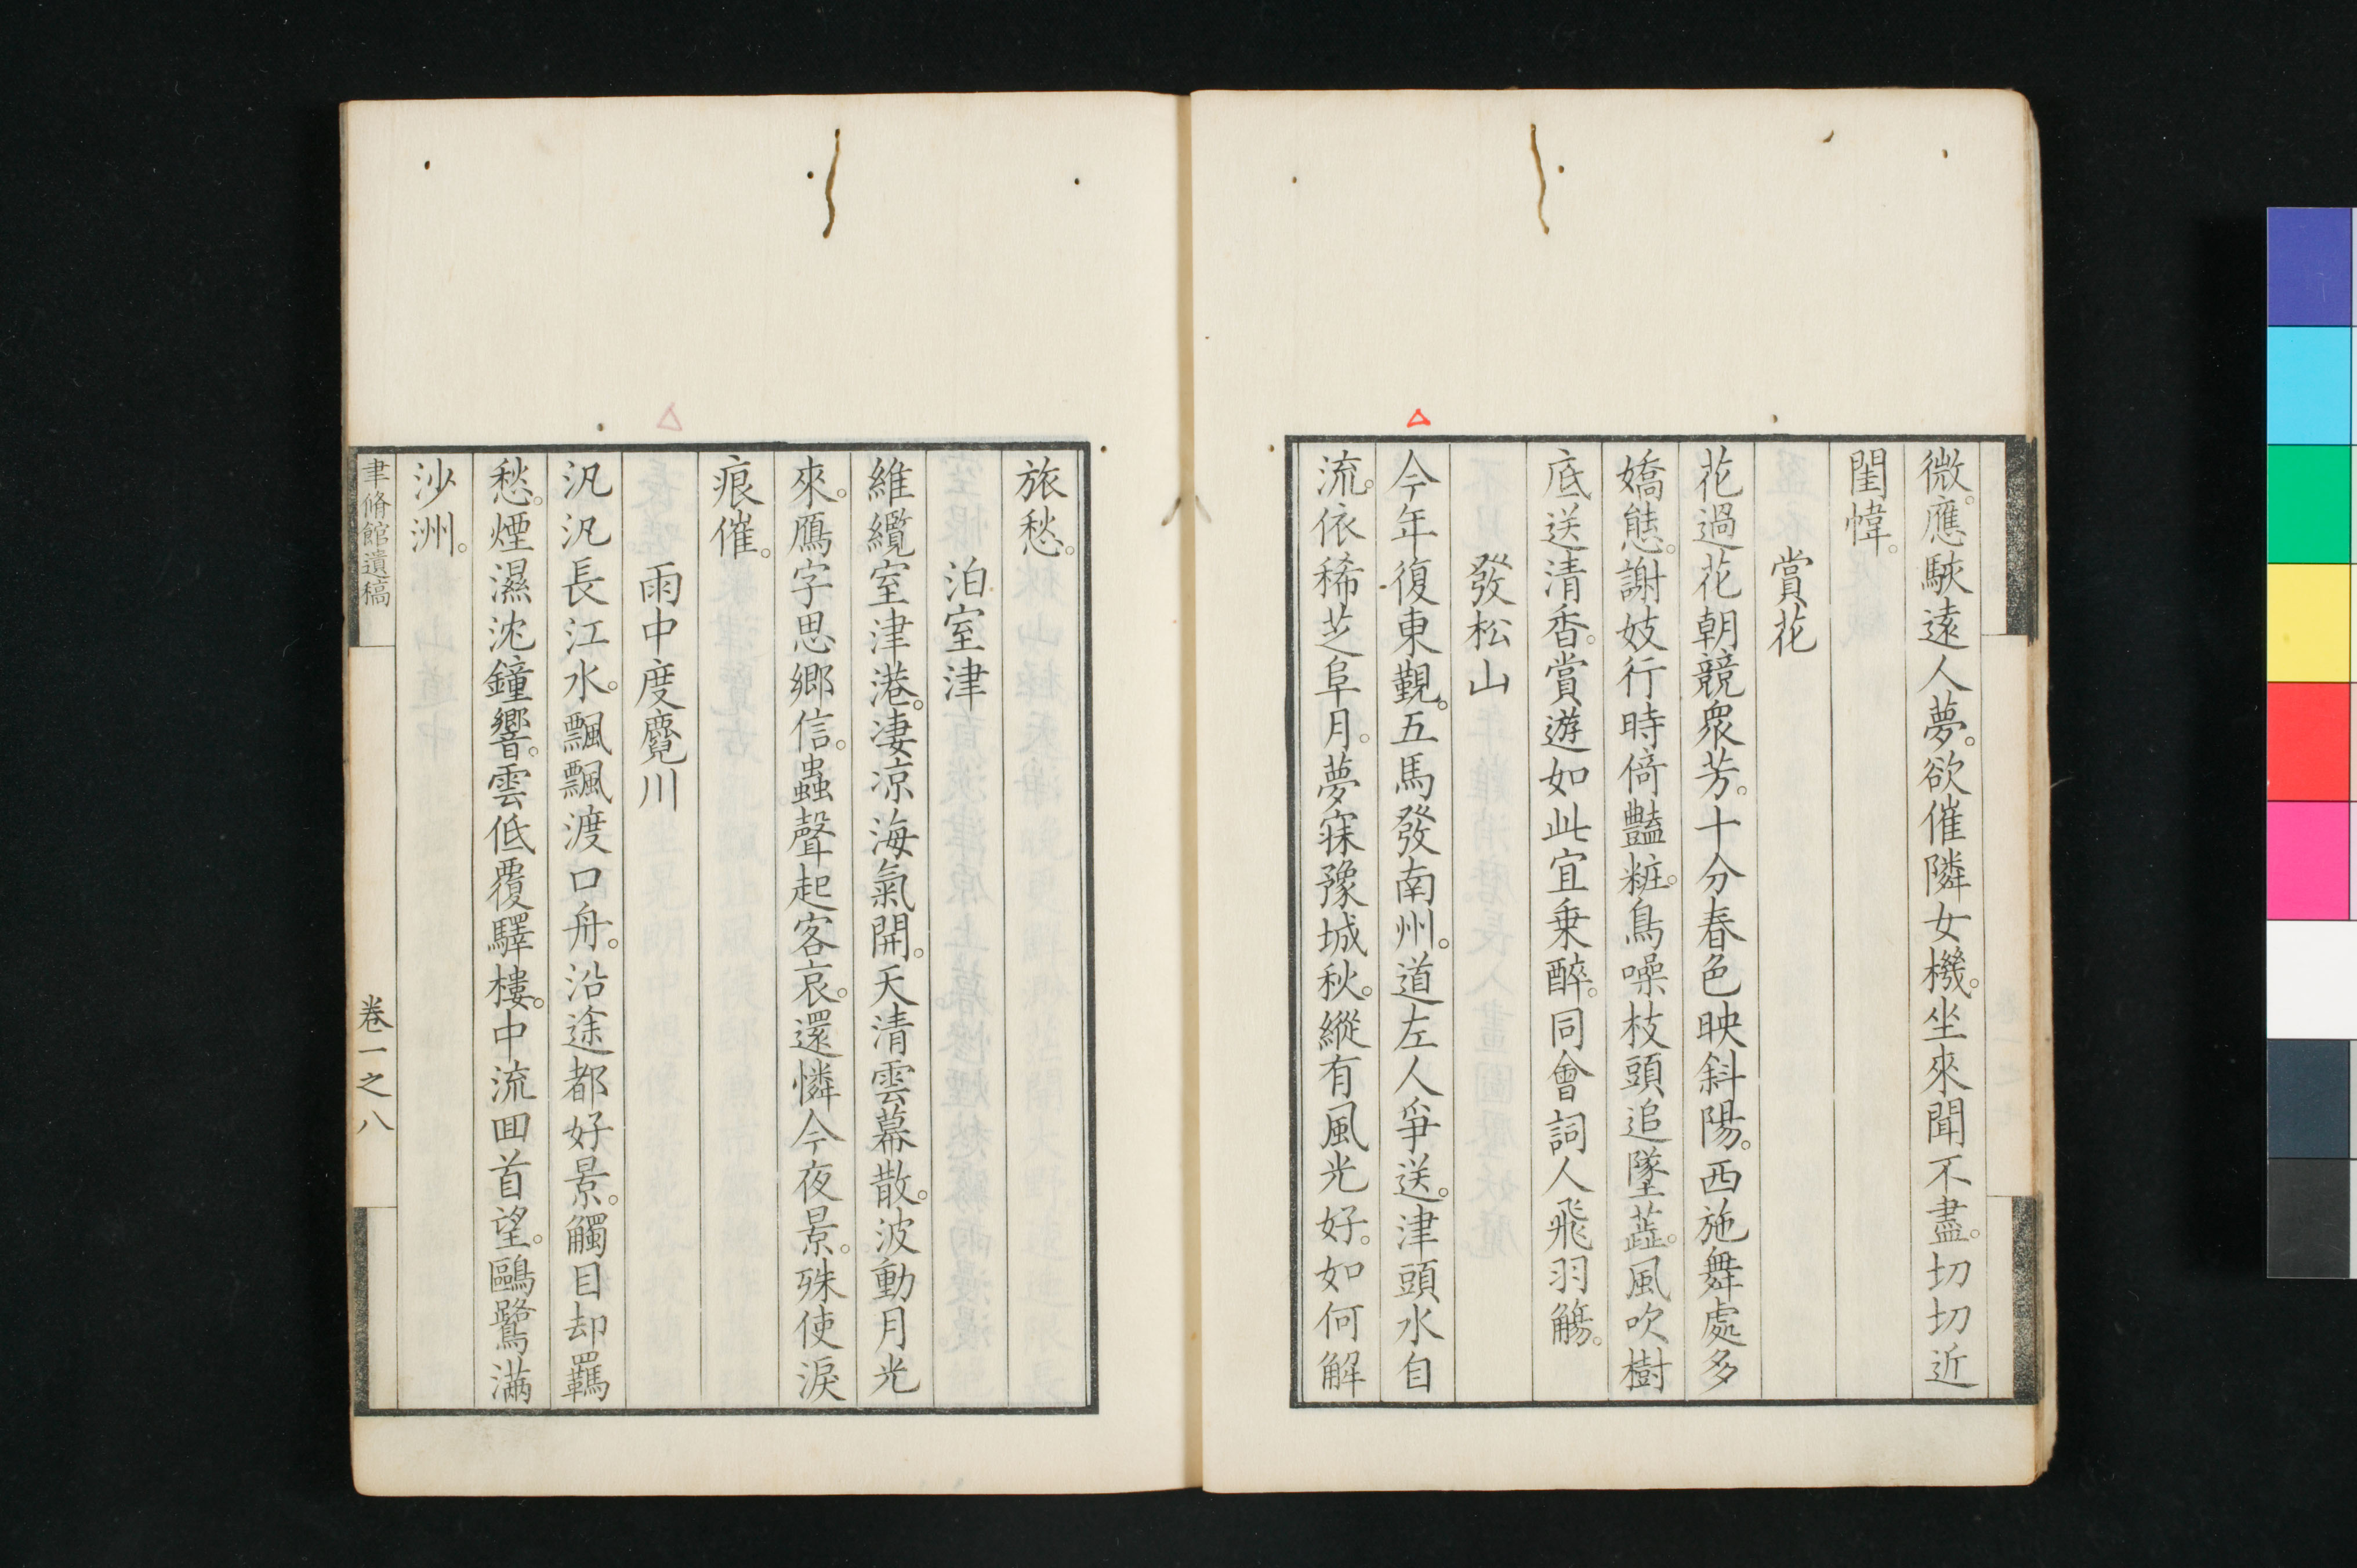 微。應駛遠人夢。欲催隣女機。坐來聞不盡。切切近
閨幃。
賞花
花過花朝競衆芳。十分春色映斜陽。西施舞處多
嬌態。謝妓行時倚豔粧。鳥噪枝頭追墜蘂。風吹樹
底送清香。賞遊如此宜乗醉。同會詞人飛羽觴。
發松山
今年復東覲。五馬發南州。道左人爭送。津頭水自
流。依稀芝阜月。夢寐豫城秋。縱有風光好。如何解
旅愁。
泊室津
維纜室津港。淒凉海氣開。天清雲幕散。波動月光
來。鴈字思鄉信。蟲聲起客哀。還憐今夜景。殊使淚
痕催。
雨中度麑川
汎汎長江水。飄飄渡口舟。沿途都好景。觸目却羈
愁。煙濕沈鐘響。雲低覆驛樓。中流回首望。鷗鷺満
沙洲。
聿脩館遺稿
卷一之八